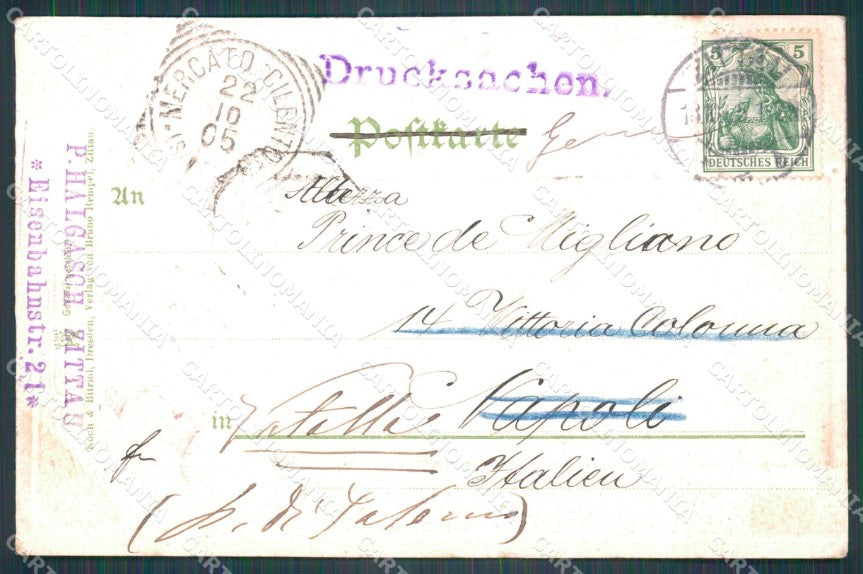 Drucksachen.
Postkarte
5 5
DEUTSCHES REICH
ZITTAU
MERCATO CILENTO
22
10
05
An
Altezza
Prince de Migliano
14 Vittoria Colonna
in Napoli
Italien
P. HALGASCH ZITTAU
*Eisenbahnstr. 21*
Koch & Bitriol, Dresden, Verlag von Bruno Hempel, Zittau
CARTOLINOMANIA